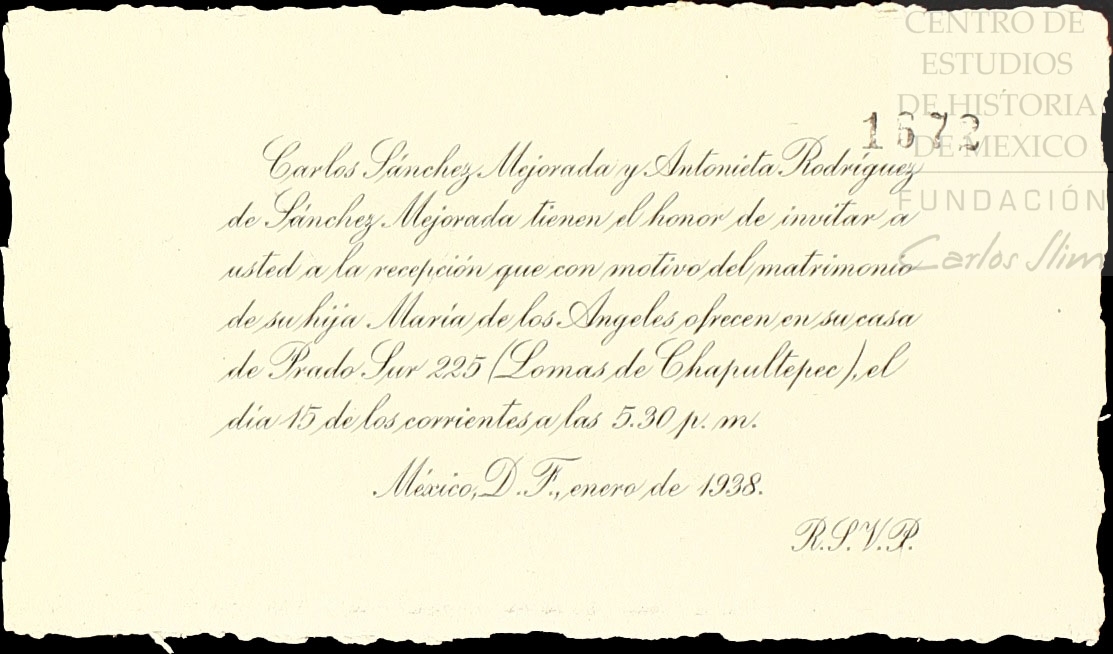 CENTRO DE
ESTUDIOS
DE HISTORIA
DE MEXICO
FUNDACIÓN
Carlos Slim
1672
Carlos Sánchez Mejorada y Antonieta Rodríguez
de Sánchez Mejorada tienen el honor de invitar a
usted a la recepción que con motivo del matrimonio
de su hija María de los Angeles ofrecen en su casa
de Prado Sur 225 (Lomas de Chapultepec), el
día 15 de los corrientes a las 5.30 p. m.
México, D. F., enero de 1938.
R. S. V. P.